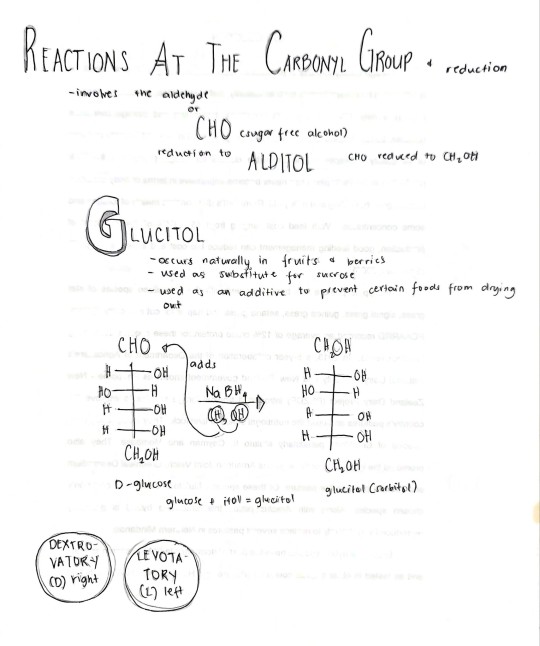 REACTIONS AT THE CARBONYL GROUP & reduction
-involves the aldehyde
or
CHO (sugar free alcohol)
reduction to ALDITOL CHO reduced to CH2OH
GLUCITOL
-occurs naturally in fruits & berries
- used as substitute for sucrose
- used as an additive to prevent certain foods from drying
out
CHO CH2OH
adds
H OH H OH
HO H NaBH4 HO H
H OH H OH
H OH H OH
CH2OH CH2OH
D-glucose glucitol (sorbitol)
glucose + = glucitol
DEXTRO-
VATORY
(D) right
LEVOTA-
TORY
(L) left